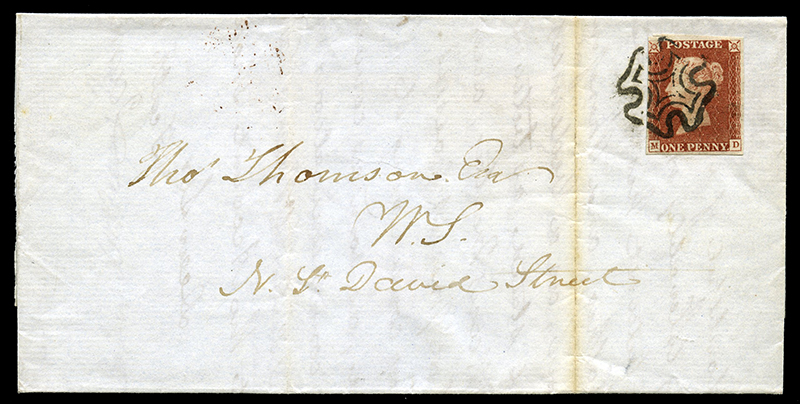 POSTAGE
M D
ONE PENNY
Thos Thomson Esq
W.S.
N. St. David Street